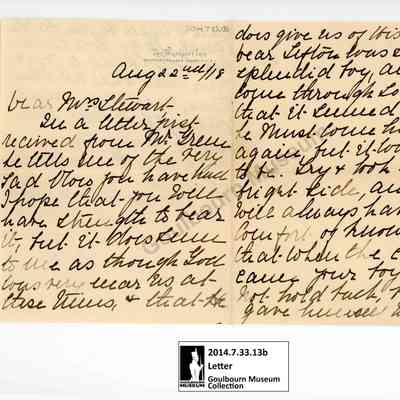 Aug 22nd/18
Dear Mrs Stewart.
In a letter just
recived from Mr Irene
he tells me of the very
sad loss you have had
I hope that you will
have strength to bear
it, but it does seem
to me as though God
was very near us at
these times, & that He
does give us of His
Dear
splendid boy, a
come through so
that it seemed
he must come h
again, but it
to
try & look
bright side, an
will always hav
comfort of know
that when the c
came your boy
not hold back,
gave himself
Goulbourn Museum
2014.7.33.13b
Letter
Goulbourn Museum
Collection
MUSEUM